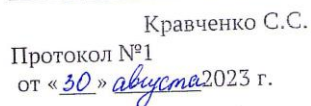 Кравченко С.С.
Протокол №1
от «30» августа 2023 г.